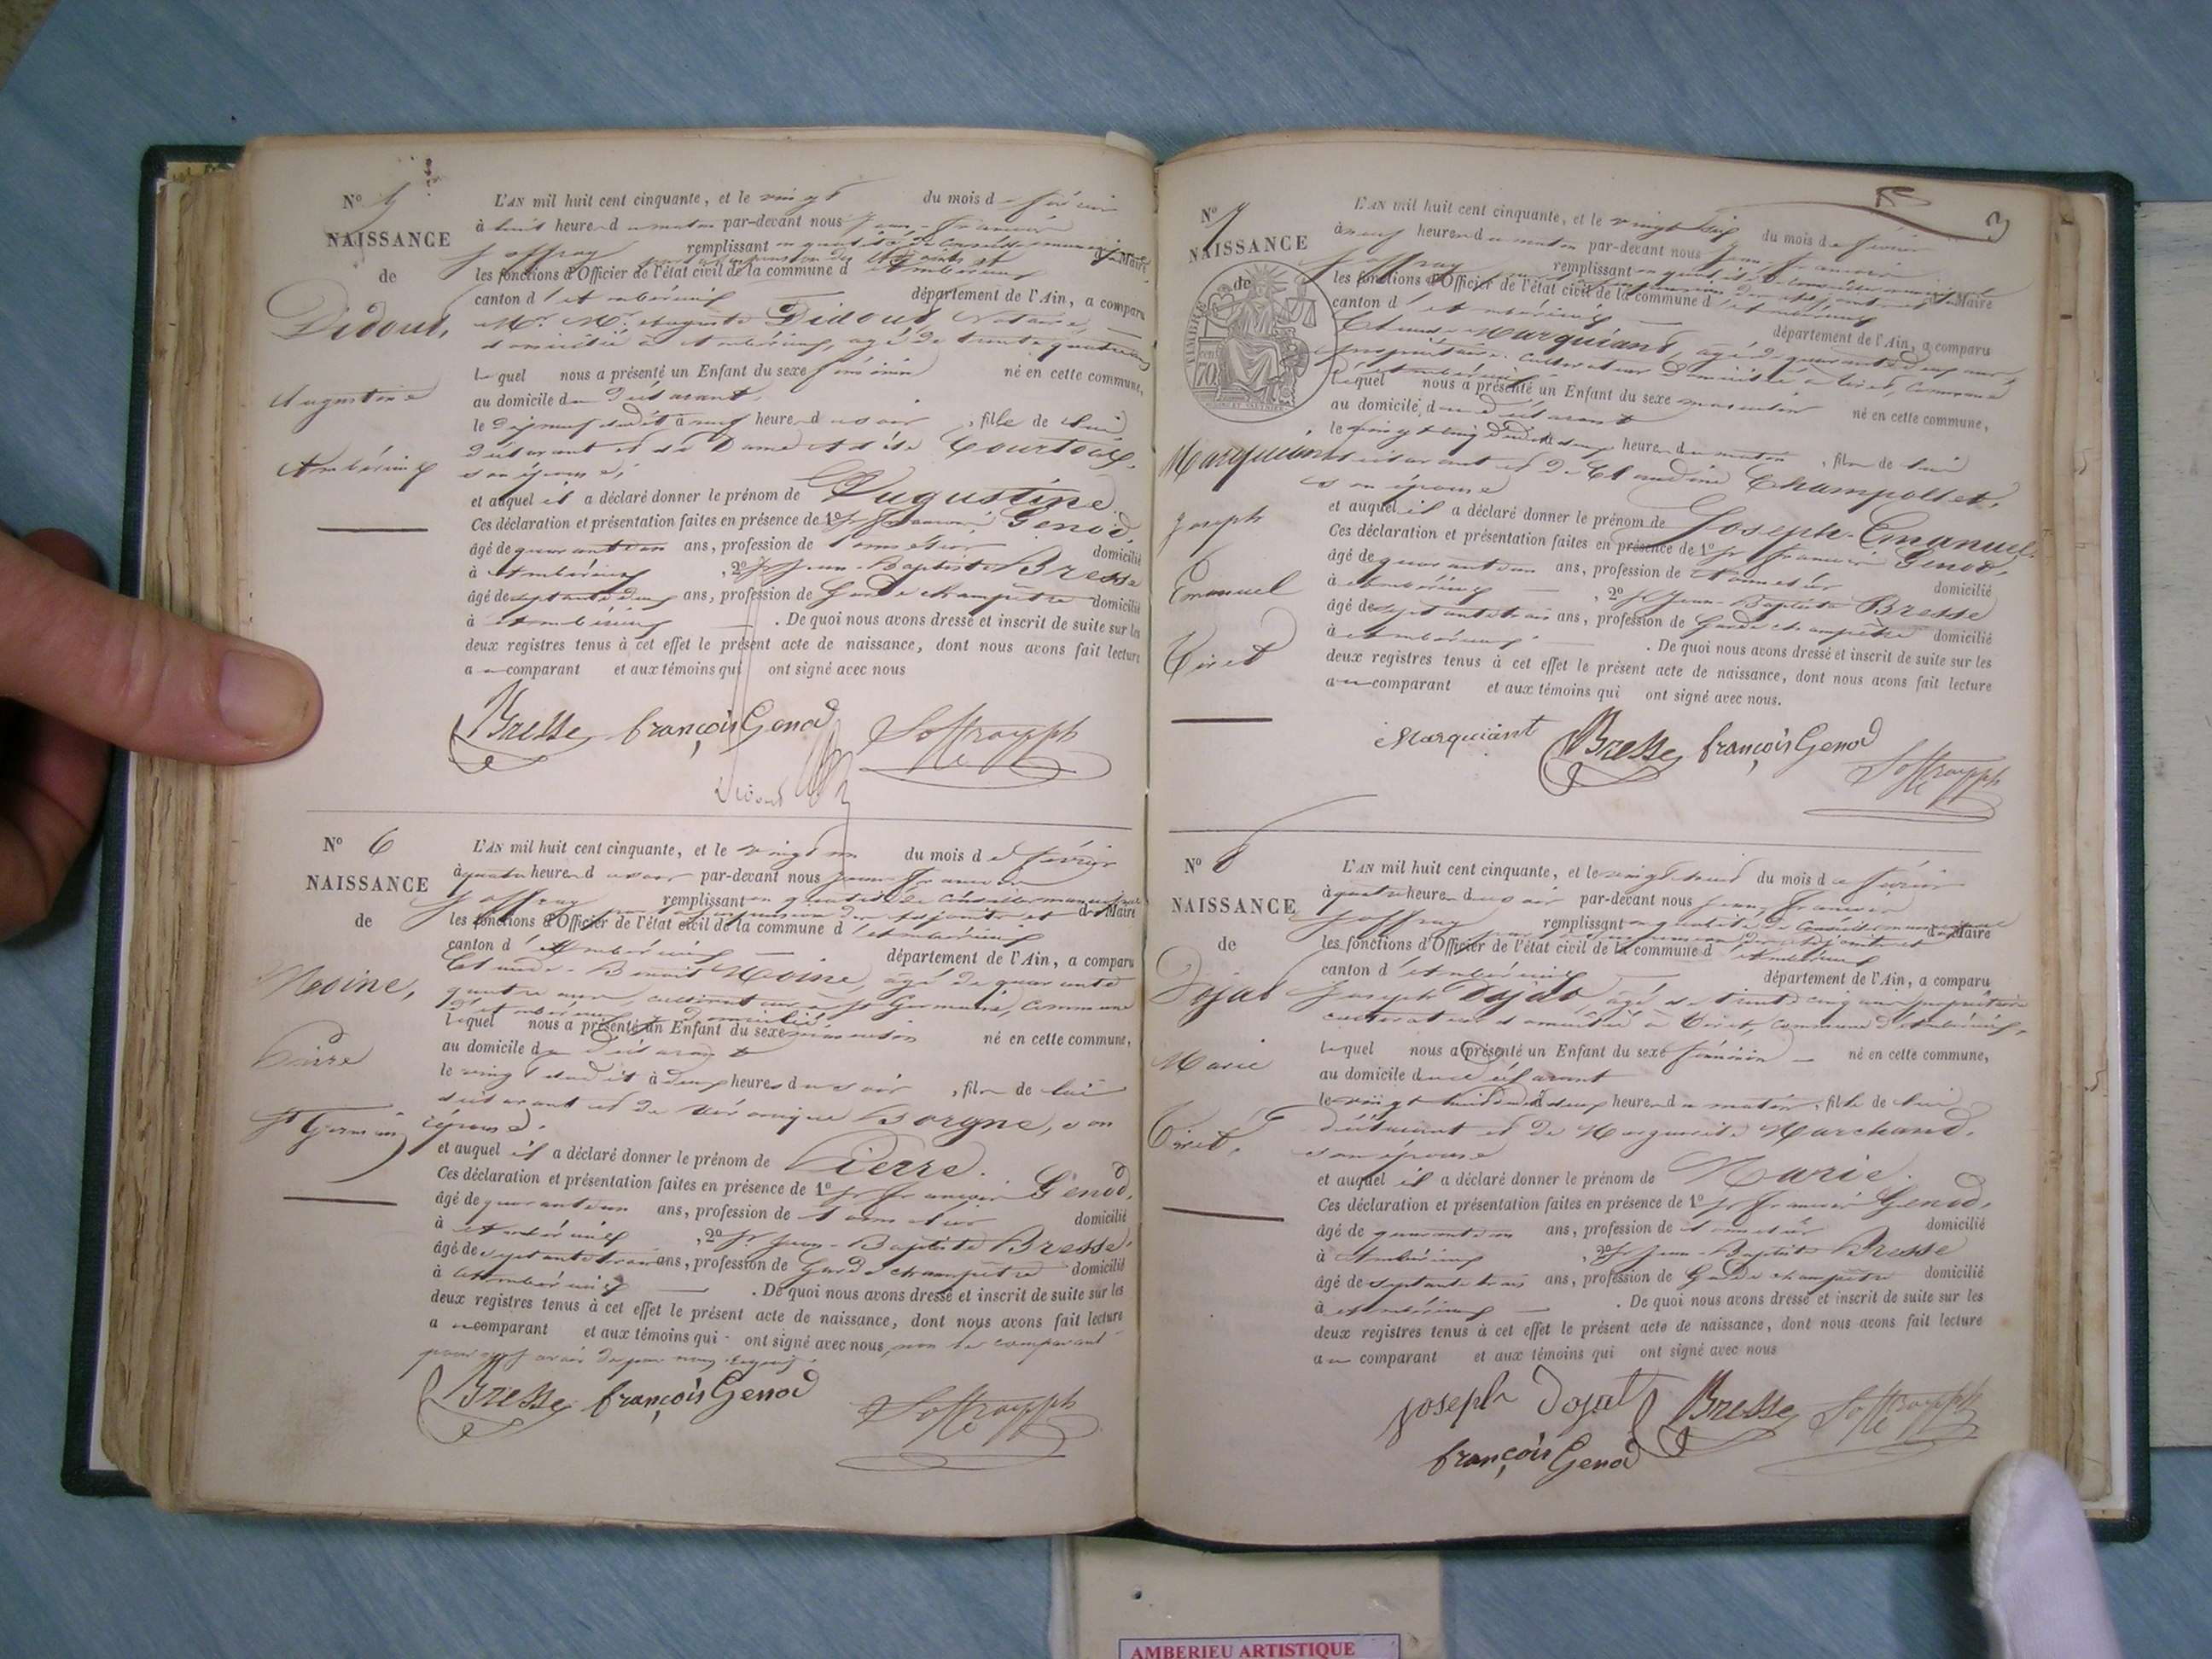 N° 5
NAISSANCE
de
Didout,
Augustine
Ambérieux
L'AN mil huit cent cinquante, et le vingt du mois de février
à huit heures du matin par-devant nous Jean-François
Joffray remplissant en qualité de Conseiller municipal
les fonctions d'Officier de l'état civil de la commune d'Ambérieux
canton d'Ambérieux département de l'Ain, a comparu
Auguste Didout, Notaire,
domicilié à Ambérieux, âgé de trente quatre ans
lequel nous a présenté un Enfant du sexe féminin né en cette commune,
au domicile du déclarant,
le dix neuf dudit à neuf heures du soir, fille de lui
déclarant et de Dame Adèle Courtois,
son épouse,
et auquel il a déclaré donner le prénom de Augustine.
Ces déclaration et présentation faites en présence de 1° Sr François Genod,
âgé de quarante un ans, profession de domicilié
à Ambérieux, 2° Sr Jean-Baptiste Bresse
âgé de septante deux ans, profession de Garde champêtre domicilié
à Ambérieux . De quoi nous avons dressé et inscrit de suite sur les
deux registres tenus à cet effet le présent acte de naissance, dont nous avons fait lecture
au comparant et aux témoins qui ont signé avec nous
Bresse françois Genod Joffray jph
Didout
N° 6
NAISSANCE
de
Moine,
Pierre
St Germain
L'AN mil huit cent cinquante, et le vingt un du mois de février
à quatre heures du soir par-devant nous Jean-François
Joffray remplissant en qualité de Conseiller municipal de Maire
les fonctions d'Officier de l'état civil de la commune d'Ambérieux
canton d'Ambérieux département de l'Ain, a comparu
Claude-Benoit Moine, âgé de quarante
quatre ans, cultivateur à St Germain, commune
d'Ambérieux domicilié
lequel nous a présenté un Enfant du sexe masculin né en cette commune,
au domicile du déclarant
le vingt dudit à deux heures du soir, fils de lui
déclarant et de Véronique Borgne, son
épouse.
et auquel il a déclaré donner le prénom de Pierre.
Ces déclaration et présentation faites en présence de 1° Sr François Genod,
âgé de quarante un ans, profession de domicilié
à Ambérieux, 2° Sr Jean-Baptiste Bresse,
âgé de septante trois ans, profession de Garde champêtre domicilié
à Ambérieux . De quoi nous avons dressé et inscrit de suite sur les
deux registres tenus à cet effet le présent acte de naissance, dont nous avons fait lecture
au comparant et aux témoins qui ont signé avec nous, non le comparant
pour ne savoir de ce enquis.
Bresse françois Genod Joffray jph
3
N° 7
NAISSANCE
de
TIMBRE
70
Marquiant
Joseph
Emanuel
Tiret
L'AN mil huit cent cinquante, et le vingt six du mois de février
à neuf heures du matin par-devant nous Jean-François
Joffray remplissant en qualité de Conseiller municipal Maire
les fonctions d'Officier de l'état civil de la commune d'Ambérieux
canton d'Ambérieux département de l'Ain, a comparu
Claude Marquiant, âgé de quarante deux ans,
propriétaire cultivateur domicilié à Tiret, commune
d'Ambérieux
lequel nous a présenté un Enfant du sexe masculin né en cette commune,
au domicile du déclarant
le vingt cinq dudit à deux heures du matin, fils de lui
déclarant et de Claudine Champollet,
son épouse
et auquel il a déclaré donner le prénom de Joseph-Emanuel.
Ces déclaration et présentation faites en présence de 1° Sr François Genod,
âgé de quarante un ans, profession de domicilié
à Ambérieux, 2° Sr Jean-Baptiste Bresse
âgé de septante trois ans, profession de Garde champêtre domicilié
à Ambérieux . De quoi nous avons dressé et inscrit de suite sur les
deux registres tenus à cet effet le présent acte de naissance, dont nous avons fait lecture
au comparant et aux témoins qui ont signé avec nous.
Marquiant Bresse françois Genod
Joffray jph
N° 8
NAISSANCE
de
Dojat
Marie
Tiret,
L'AN mil huit cent cinquante, et le vingt huit du mois de février
à quatre heures du soir par-devant nous Jean-François
Joffray remplissant en qualité de Conseiller municipal Maire
les fonctions d'Officier de l'état civil de la commune d'Ambérieux
canton d'Ambérieux département de l'Ain, a comparu
Joseph Dojat, âgé de trente cinq ans, propriétaire
cultivateur domicilié à Tiret, commune d'Ambérieux,
lequel nous a présenté un Enfant du sexe féminin né en cette commune,
au domicile du déclarant
le vingt huit dudit à deux heures du matin, fille de lui
déclarant et de Marguerite Marchand,
son épouse
et auquel il a déclaré donner le prénom de Marie.
Ces déclaration et présentation faites en présence de 1° Sr François Genod,
âgé de quarante un ans, profession de domicilié
à Ambérieux, 2° Sr Jean-Baptiste Bresse
âgé de septante trois ans, profession de Garde champêtre domicilié
à Ambérieux . De quoi nous avons dressé et inscrit de suite sur les
deux registres tenus à cet effet le présent acte de naissance, dont nous avons fait lecture
au comparant et aux témoins qui ont signé avec nous
joseph Dojat Bresse Joffray jph
françois Genod
AMBERIEU ARTISTIQUE